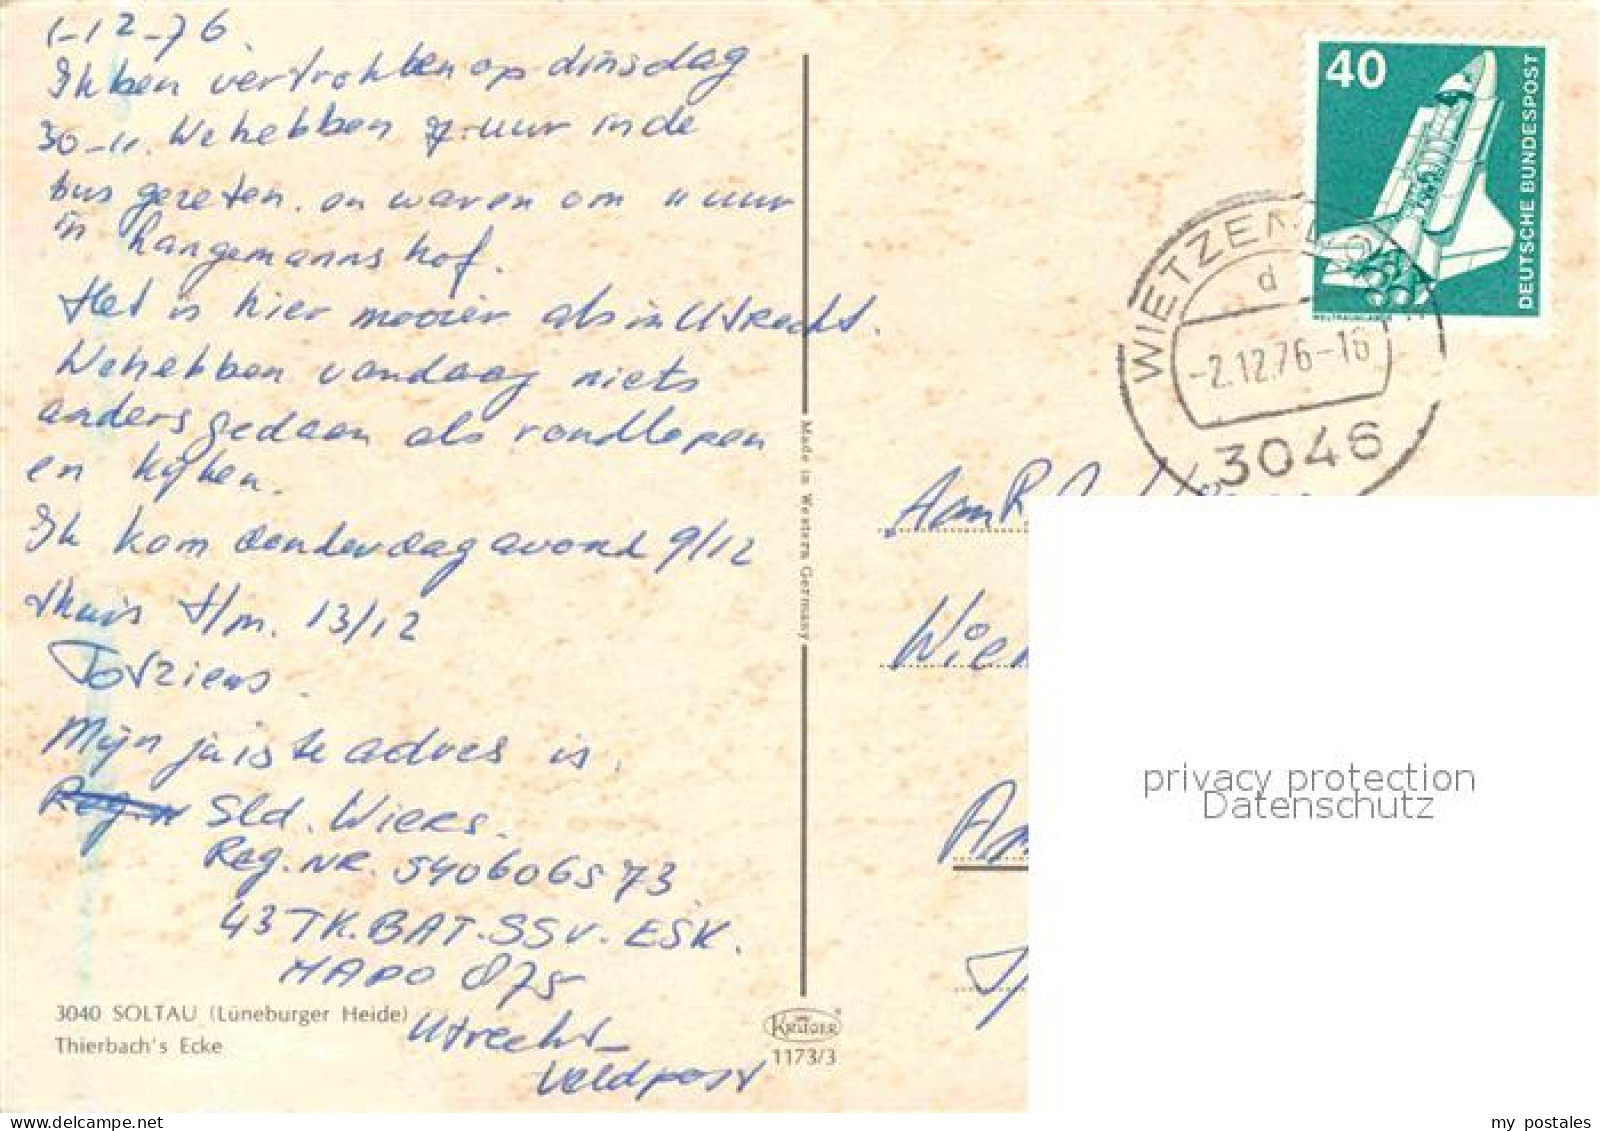 1-12-76.
Ik ben vertrokken op dinsdag
30-11. We hebben 7-uur in de
bus gezeten. en waren om 11 uur
in Langemanns hof.
Het is hier mooier als in Utrecht.
We hebben vandaag niets
anders gedaan als rondlopen
en kijken.
Ik kom donderdag avond 9/12
thuis t/m. 13/12
Tot ziens.
Mijn juiste adres is.
Sld. Wiers.
Reg. NR. 540606573
43 TK. BAT. SSV. ESK.
NAPO 875
Utrecht-
Veldpost
3040 SOLTAU (Lüneburger Heide)
Thierbach's Ecke
Made in Western Germany
KRÜGER
1173/3
40
DEUTSCHE BUNDESPOST
WELTRAUMLABOR
WIETZENDORF
d
-2.12.76-16
3046
Aan
Wier
Am
privacy protection
Datenschutz
delcampe.net
my_postales